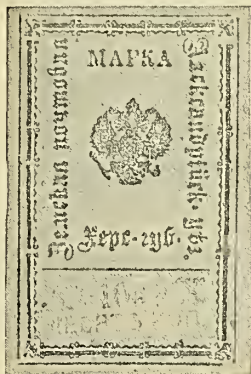 МАРКА
Земская почтовая
Александрійск. уѣз.
Херс. губ.